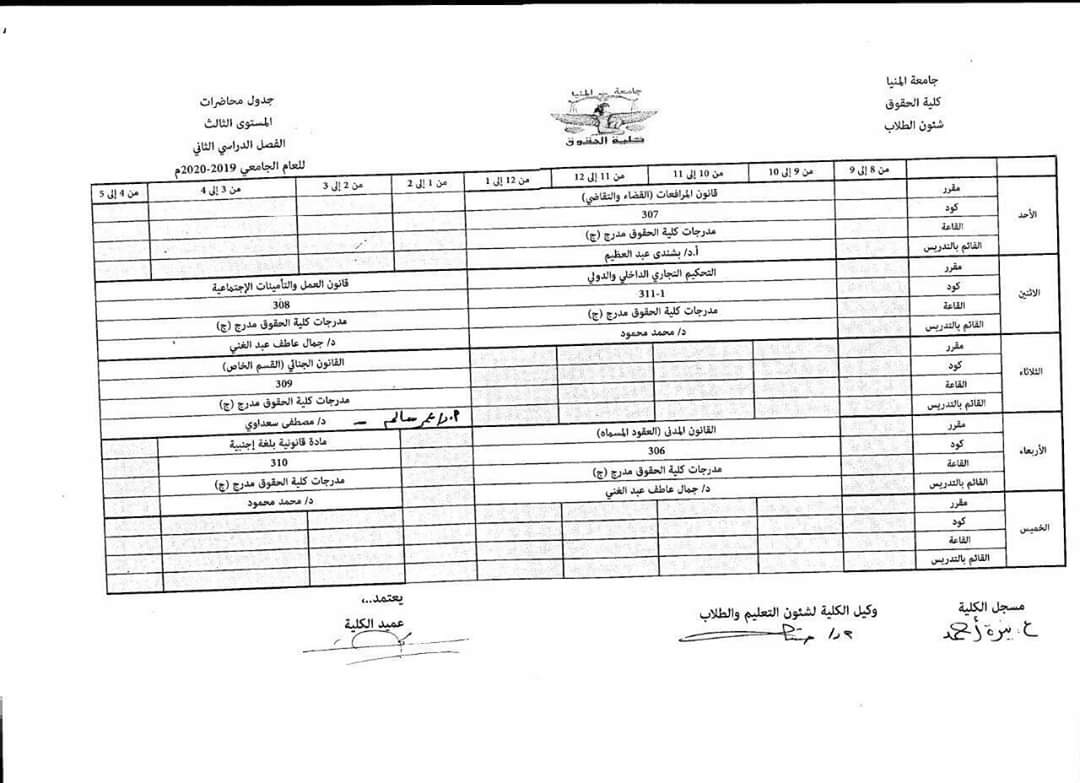 جامعة المنيا
كلية الحقوق
شئون الطلاب
جامعة المنيا
كلية الحقوق
جدول محاضرات
المستوى الثالث
الفصل الدراسي الثاني
للعام الجامعي 2019-2020م
من 8 إلى 9 من 9 إلى 10 من 10 إلى 11 من 11 إلى 12 من 12 إلى 1 من 1 إلى 2 من 2 إلى 3 من 3 إلى 4 من 4 إلى 5
الأحد
مقرر قانون المرافعات (القضاء والتقاضي)
كود 307
القاعة مدرجات كلية الحقوق مدرج (ج)
القائم بالتدريس أ.د/ بشندى عبد العظيم
الاثنين
مقرر التحكيم التجاري الداخلي والدولي قانون العمل والتأمينات الإجتماعية
كود 311-1 308
القاعة مدرجات كلية الحقوق مدرج (ج) مدرجات كلية الحقوق مدرج (ج)
القائم بالتدريس د/ محمد محمود د/ جمال عاطف عبد الغني
الثلاثاء
مقرر القانون الجنائي (القسم الخاص)
كود 309
القاعة مدرجات كلية الحقوق مدرج (ج)
القائم بالتدريس د/ مصطفى سعداوي –
الأربعاء
مقرر القانون المدنى (العقود المسماه) مادة قانونية بلغة إجنبية
كود 306 310
القاعة مدرجات كلية الحقوق مدرج (ج) مدرجات كلية الحقوق مدرج (ج)
القائم بالتدريس د/ جمال عاطف عبد الغني د/ محمد محمود
الخميس
مقرر
كود
القاعة
القائم بالتدريس
مسجل الكلية
وكيل الكلية لشئون التعليم والطلاب
يعتمد،..
عميد الكلية